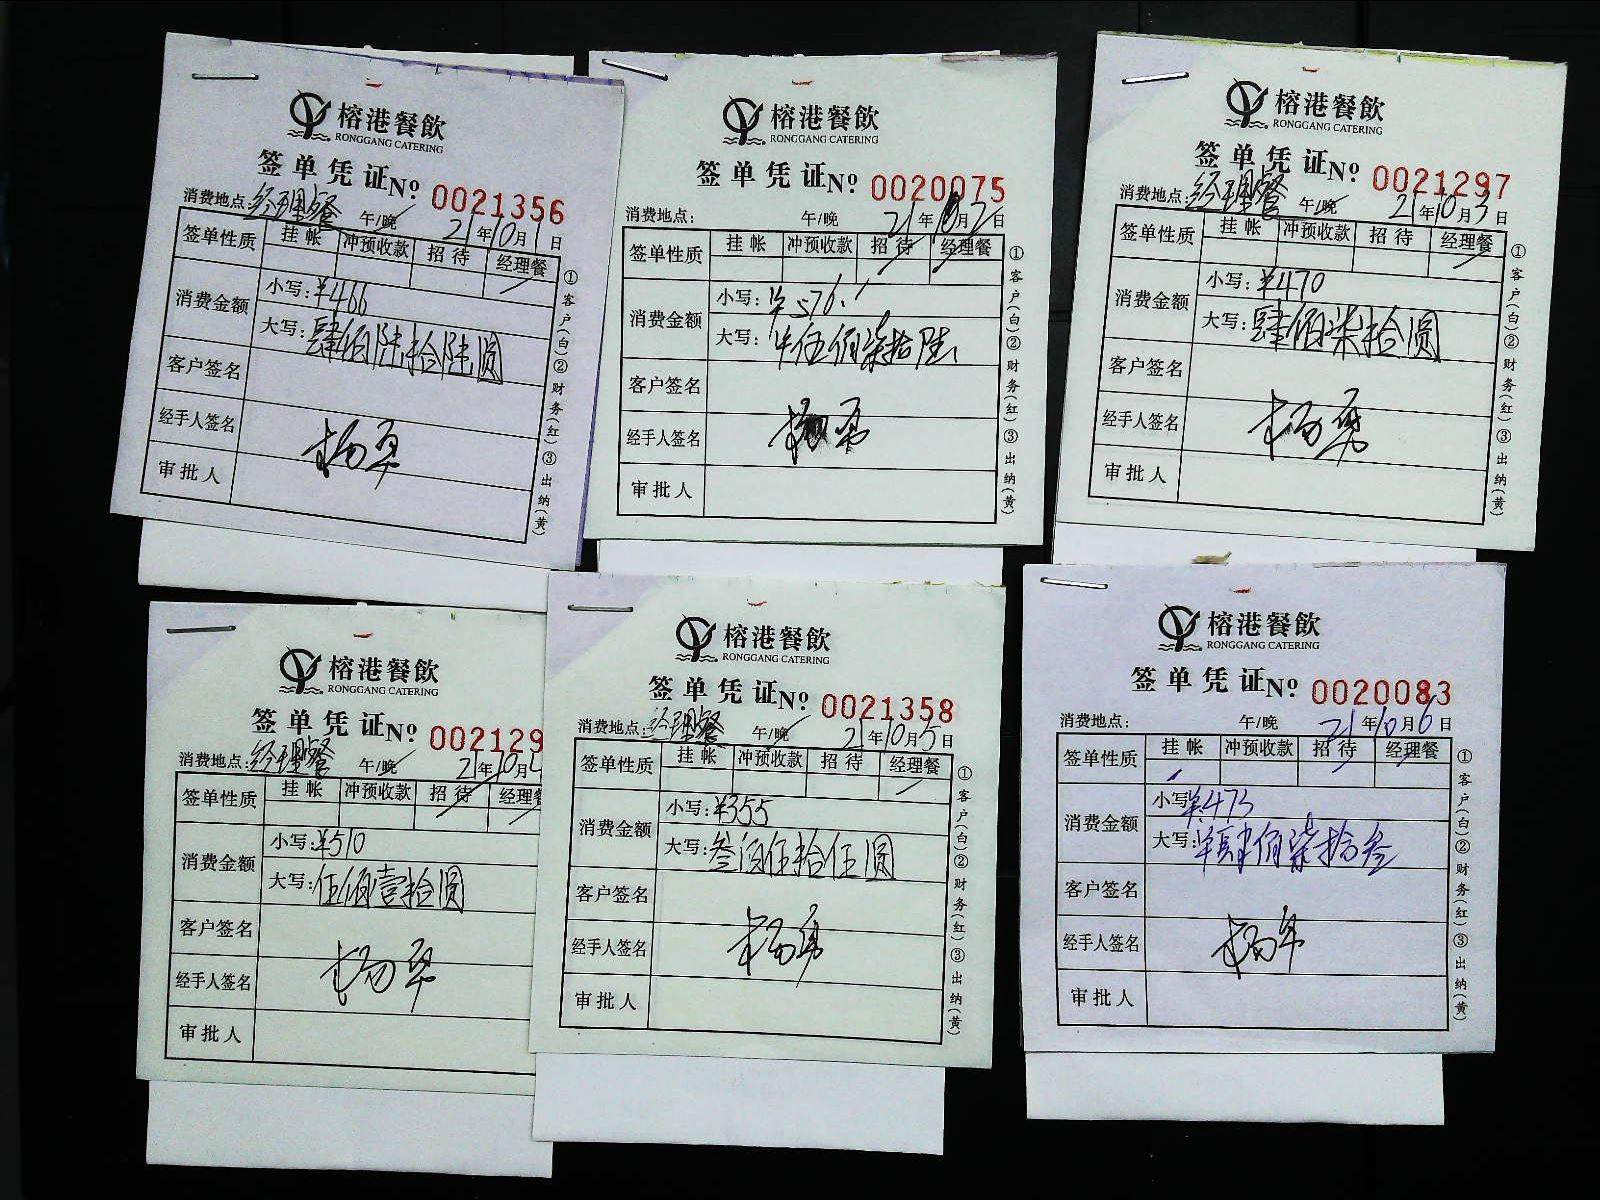 榕港餐飲
RONGGANG CATERING
签单凭证 No. 0021356
消费地点:经理餐 午/晚 21年10月1日
签单性质 挂帐 冲预收款 招待 经理餐
消费金额 小写:¥466
大写:肆佰陆拾陆圆
客户签名
经手人签名 杨勇
审批人
①客户(白)②财务(红)③出纳(黄)
榕港餐飲
RONGGANG CATERING
签单凭证 No. 0020075
消费地点: 午/晚 21年10月2日
签单性质 挂帐 冲预收款 招待 经理餐
消费金额 小写:¥576.
大写:伍佰柒拾陆
客户签名
经手人签名 杨勇
审批人
①客户(白)②财务(红)③出纳(黄)
榕港餐飲
RONGGANG CATERING
签单凭证 No. 0021297
消费地点:经理餐 午/晚 21年10月3日
签单性质 挂帐 冲预收款 招待 经理餐
消费金额 小写:¥470
大写:肆佰柒拾圆
客户签名
经手人签名 杨勇
审批人
①客户(白)②财务(红)③出纳(黄)
榕港餐飲
RONGGANG CATERING
签单凭证 No. 002129
消费地点:经理餐 午/晚 21年10月
签单性质 挂帐 冲预收款 招待 经理餐
消费金额 小写:¥510
大写:伍佰壹拾圆
客户签名
经手人签名 杨勇
审批人
榕港餐飲
RONGGANG CATERING
签单凭证 No. 0021358
消费地点:经理餐 午/晚 21年10月5日
签单性质 挂帐 冲预收款 招待 经理餐
消费金额 小写:¥355
大写:叁佰伍拾伍圆
客户签名
经手人签名 杨勇
审批人
①客户(白)②财务(红)③出纳(黄)
榕港餐飲
RONGGANG CATERING
签单凭证 No. 0020083
消费地点: 午/晚 21年10月6日
签单性质 挂帐 冲预收款 招待 经理餐
消费金额 小写:¥473
大写:肆佰柒拾叁
客户签名
经手人签名 杨勇
审批人
①客户(白)②财务(红)③出纳(黄)